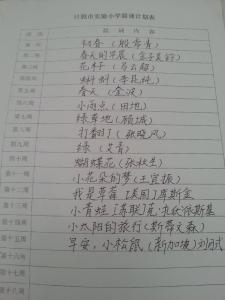 日照市实验小学晨诵计划表
周次 晨诵内容
第一周 初春（殷常青）
第二周 春天的早晨（金子美铃）
第三周 花籽（马云超）
第四周 蝌蚪（李昆纯）
第五周 春天（金波）
第六周 小雨点（田地）
第七周 绿草地（顾城）
第八周 打翻了（张晓风）
第九周 绿（艾青）
第十周 蝴蝶花（张秋生）
第十一周 小花朵的梦（王宜振）
第十二周 我是草莓[美国]库斯金
第十三周 小青蛙[苏联]
第十四周 小太阳的旅行（斯蒂文森）
第十五周 早安，小松鼠（新加坡）
第十六周
第十七周
第十八周